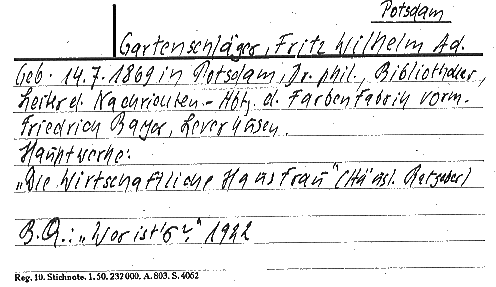 Potsdam
Gartenschläger, Fritz Wilhelm Ad.
Geb. 14.7.1869 in Potsdam, Dr. phil., Bibliothekar,
Leiter d. Nachrichten-Abtg. d. Farbenfabrik vorm.
Friedrich Bayer, Leverkusen.
Hauptwerke:
„Die Wirtschaftliche Hausfrau" (Häusl. Ratgeber)
B.Q.: „Wer ist's?" 1922
Reg. 10. Stichnote. 1. 50. 232000. A. 803. S. 4062